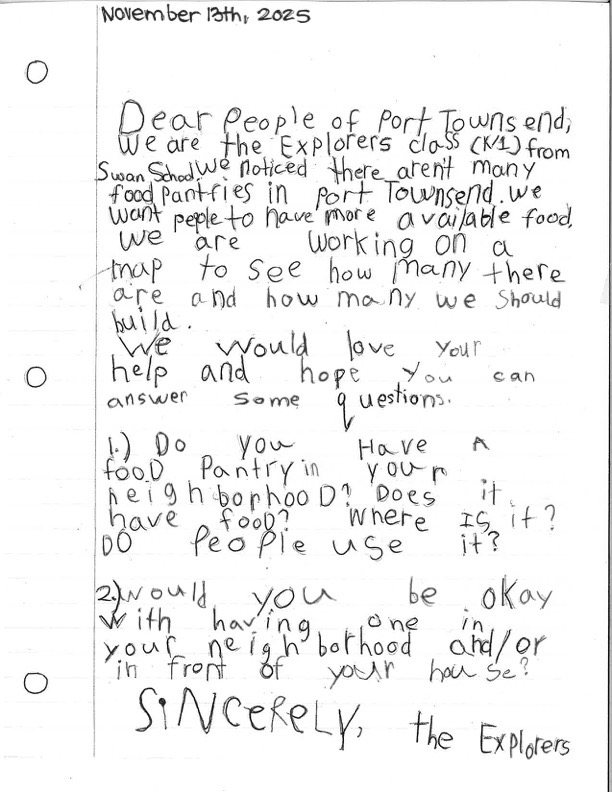 November 13th, 2025
Dear People of Port Townsend,
We are the Explorers class (K/1) from
Swan School. We noticed there aren't many
food pantries in Port Townsend. We
want people to have more available food.
We are working on a
map to see how many there
are and how many we should
build.
We would love your
help and hope you can
answer some questions.
1.) Do you Have A
fooD Pantry in your
neighborhooD? Does it
have food? Where Is it?
DO PeoPle use it?
2.) would you be okay
with having one in
your neighborhood and/or
in front of your house?
SiNCeReLY, the Explorers